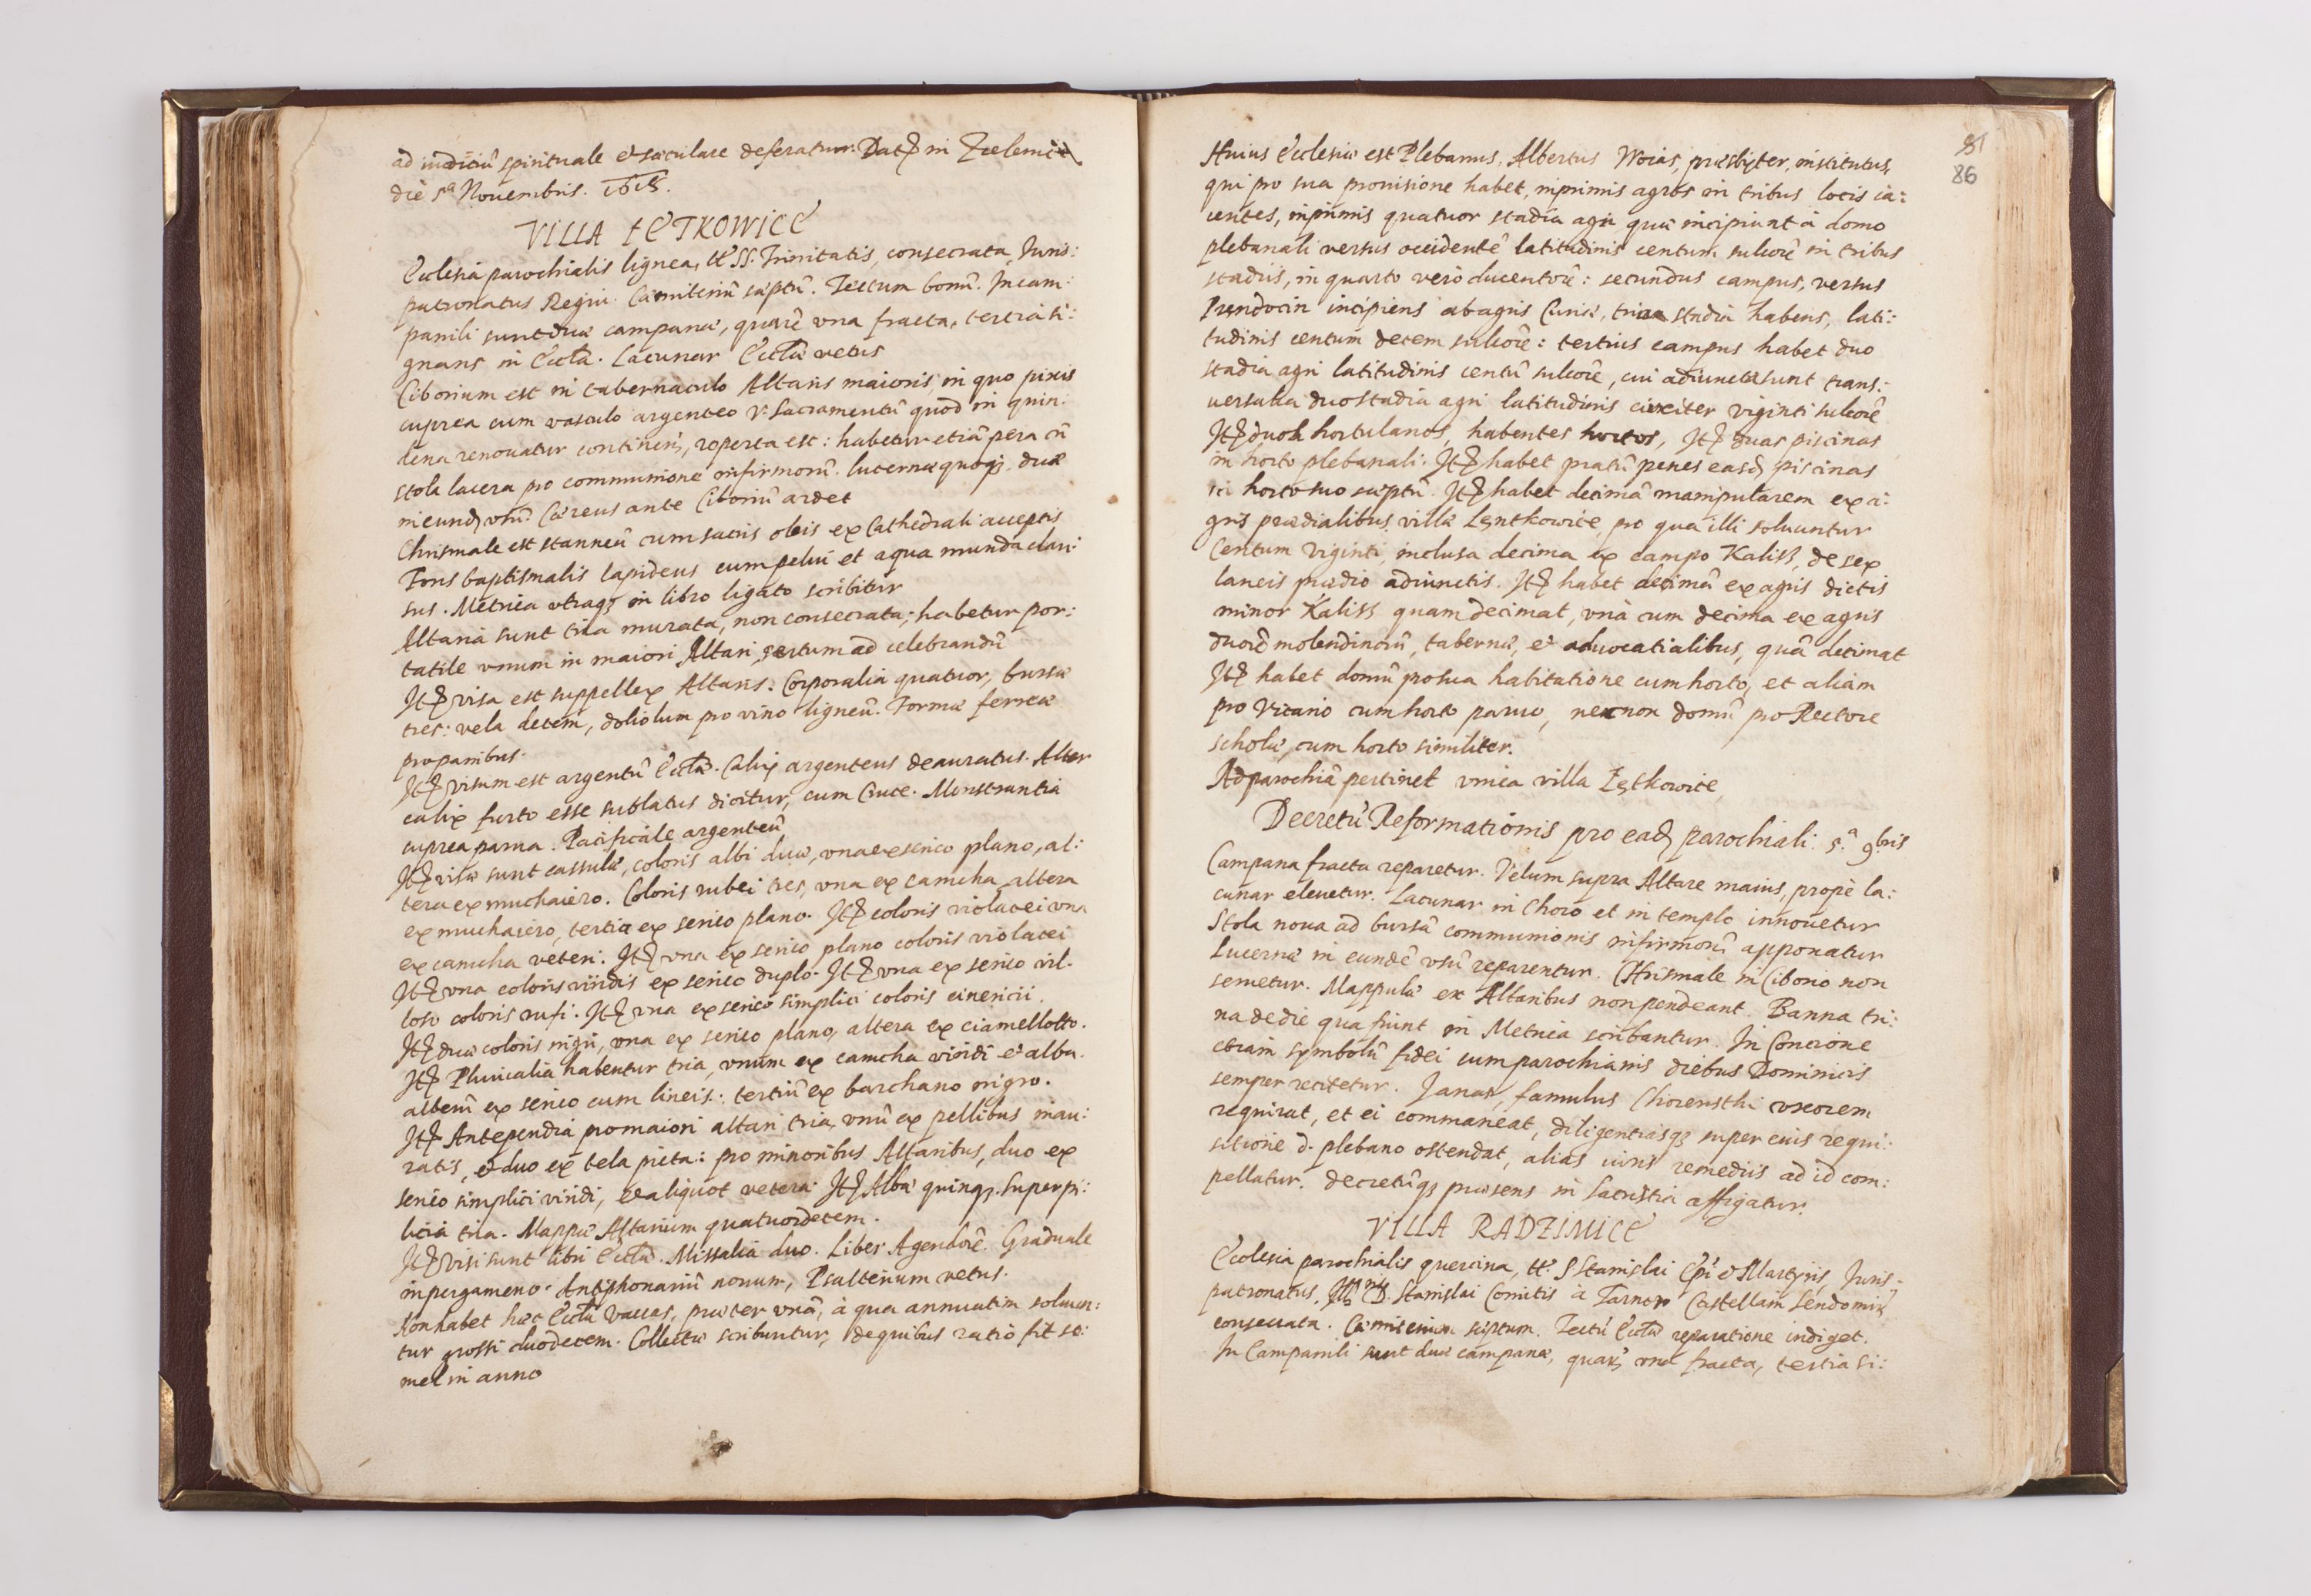 ad iudiciū spirituale et sæculare deferatur. Dat in
die 5ª Nouembris.
VILLA ŁĘTKOWICE
Ecclesia parochialis lignea, tt. SS. Trinitatis, consecrata, Juris:
patronatus Regii. Cæmiteriū sæptū. Tectum bonū. In cam:
panili sunt duæ campanæ, quarū vna fracta, tertia si:
gnans in Eccla. Lacunar Ecclæ vetus
Ciborium est in tabernaculo Altaris maioris, in quo pixis
cuprea cum vasculo argenteo V. Sacramentū quod in quin:
dena renouatur continens, reperta est: habetur etiā pera cū
stola lacera pro communione infirmorū. lucernæ quoq duæ
in eund vsū. Cæreus ante Ciboriū ardet
Chrismale est stanneū cum sacris oleis ex Cathedrali acceptis
Fons baptismalis lapideus cum pelui et aqua munda clau:
sus. Metrica vtraq in libro ligato scribitur
Altaria sunt tria murata, non consecrata, habetur por:
tatile vnum in maiori Altari, aptum ad celebrandū
It visa est suppellex Altaris. Corporalia quatuor, bursæ
tres: vela decem, doliolum pro vino ligneū. Formæ ferreæ
pro panibus.
It visum est argentū Ecclæ. Calix argenteus deauratus. Alter
calix furto esse sublatus dicitur, cum Cruce. Monstrantia
cuprea parua. Pacificale argenteū,
It visæ sunt cassulæ, coloris albi duæ, vna ex serico plano, al:
tera ex muchaiero. Coloris rubei tres, vna ex camcha altera
ex muchaiero, tertia ex serico plano. It coloris violacei vna
ex camcha veteri. It vna ex serico plano coloris violacei
It vna coloris viridis ex serico duplo. It vna ex serico vil:
loso coloris rufi. It vna ex serico simplici coloris cinericii.
It duæ coloris nigri, vna ex serico plano, altera ex ciamellotto.
It Pluuialia habentur tria, vnum ex camcha viridi et alba.
alterū ex serico cum lineis: tertiū ex barchano nigro.
It Antependia pro maiori altari tria, vnū ex pellibus inau:
ratis, et duo ex tela picta: pro minoribus Altaribus, duo ex
serico simplici viridi, et aliquot vetera. It Albæ quinq. Superpi:
licia tria. Mappæ Altarium quatuordecem.
It visi sunt libri Ecclæ. Missalia duo. Liber Agendorū. Graduale
in pergameno. Antiphonariū nouum, Psalterium vetus.
Non habet hæc Eccla vaccas, præter vnā, à qua annuatim soluun:
tur grossi duodecem. Collectæ scribuntur, de quibus ratio fit se:
mel in anno
81
86
Huius Ecclesiæ est Plebanus, Albertus Woias, præsbyter, institutus,
qui pro sua prouisione habet, inprimis agros in tribus locis ia:
centes, inprimis quatuor stadia agri quæ incipiunt à domo
plebanali versus occidentē latitudinis centum sulcorū in tribus
stadiis, in quarto verò ducentorū: secundus campus, versus
Prendocin incipiens ab agris Curiæ, tria stadia habens, lati:
tudinis centum decem sulcorū: tertius campus habet duo
stadia agri latitudinis centū sulcorū, cui adiuncta sunt trans:
uersalia duo stadia agri latitudinis circiter viginti sulcorū
It duos hortulanos, habentes hortos, It duas piscinas
in horto plebanali. It habet pratū penes easd piscinas
in horto suo sæptū. It habet decimā manipularem ex a:
gris prædialibus villæ Lęntkowice, pro qua illi soluuntur
Centum viginti, inclusa decima ex campo Kalisz, de sex
laneis prædio adiunctis. It habet decimā ex agris dictis
minor Kalisz quam decimat, vnà cum decima ex agris
duorū molendinorū, tabernæ, et aduocatialibus, quā decimat
It habet domū pro sua habitatione cum horto, et aliam
pro Vicario cum horto paruo, necnon domū pro Rectore
scholæ, cum horto similiter.
Ad parochiā pertinet vnica villa Łętkowice,
Decretū Reformationis pro ead parochiali. 5.ª 9bris
Campana fracta reparetur. Velum supra Altare maius, propè la:
cunar eleuetur. Lacunar in Choro et in templo innouetur
Stola noua ad bursā communionis infirmorū apponatur
Lucernæ in eundē vsū reparentur. Chrismale in Ciborio non
seruetur. Mappulæ ex Altaribus non pendeant. Banna tri:
na de die qua fiunt in Metrica scribantur. In Concione
etiam symbolū fidei cum parochianis diebus Dominicis
semper recitetur. Janas, famulus vxorem
requirat, et ei commaneat, diligentiasq super eius requi:
sitione d. plebano ostendat, alias iuris remediis ad id com:
pellatur. decretūq præsens in Sacristia affigatur.
VILLA RADZIMICE
Ecclesia parochialis quercina, tt. S Stanislai Epi et Martyris, Juris:
patronatus, D. Stanislai Comitis à Tarnow Castellani Sendomir
consecrata. Cæmiterium sæptum. Tectū Ecclæ reparatione indiget.
In Campanili sunt duæ campanæ, quarū vna fracta, tertia si: